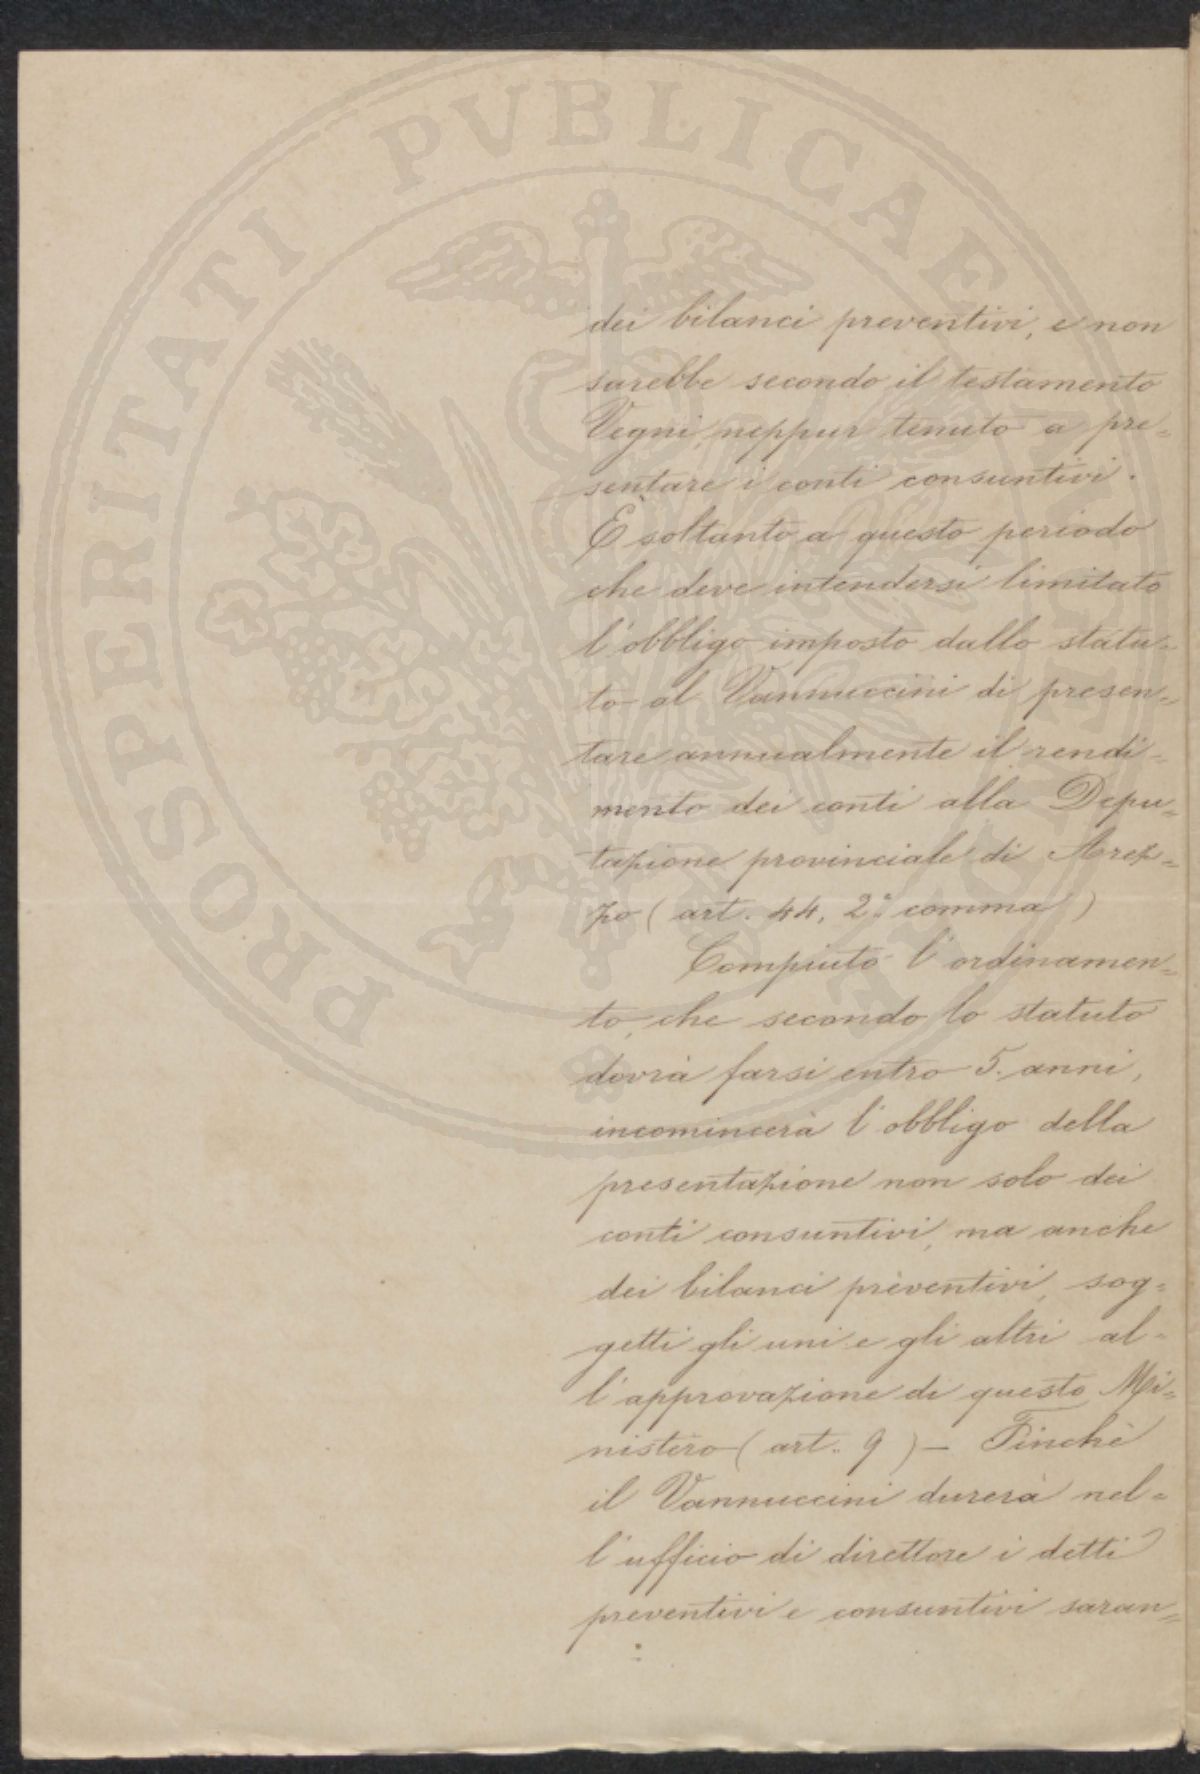 PROSPERITATI PVBLICAE AVGENDAE
dei bilanci preventivi, e non
sarebbe secondo il testamento
Vegni, neppur tenuto a pre=
sentare i conti consuntivi.
È soltanto a questo periodo
che deve intendersi limitato
l'obbligo imposto dallo statu=
to al Vannuccini di presen=
tare annualmente il rendi=
mento dei conti alla Depu=
tazione provinciale di Arez=
zo (art. 44, 2º comma)
Compiuto l'ordinamen=
to, che secondo lo statuto
dovrà farsi entro 5. anni,
incomincerà l'obbligo della
presentazione non solo dei
conti consuntivi, ma anche
dei bilanci preventivi, sog=
getti gli uni e gli altri al=
l'approvazione di questo Mi=
nistero (art. 9) — Finchè
il Vannuccini durerà nel=
l'ufficio di direttore i detti
preventivi e consuntivi saran=